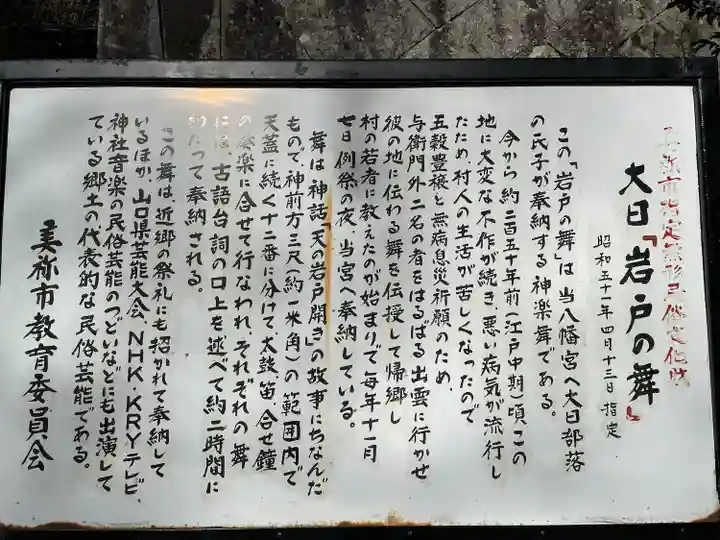 美祢市指定無形民俗文化財
大日「岩戸の舞」
昭和五十一年四月十三日 指定
この「岩戸の舞」は当八幡宮へ大日部落
の氏子が奉納する神楽舞である。
今から約二百五十年前(江戸中期)頃、この
地に大変な不作が続き、悪い病気が流行し
たため、村人の生活が苦しくなったので
五穀豊穣と無病息災祈願のため
与衛門外二名の者をはるばる出雲に行かせ
彼の地に伝わる舞を伝授して帰郷し
村の若者に教えたのが始まりで毎年十一月
七日例祭の夜、当宮へ奉納している。
舞は神話「天の岩戸開き」の故事にちなんだ
もので、神前方三尺(約一米角)の範囲内で
天蓋に続く十二番に分けて、太鼓、笛、合せ鐘
の奏楽に合せて行なわれ、それぞれの舞
には、古語台詞の口上を述べて約二時間に
わたって奉納される。
この舞は、近郷の祭礼にも招かれて奉納して
いるほか、山口県芸能大会、NHK・KRYテレビ、
神社音楽の民俗芸能のつどいなどにも出演して
ている郷土の代表的な民俗芸能である。
美祢市教育委員会